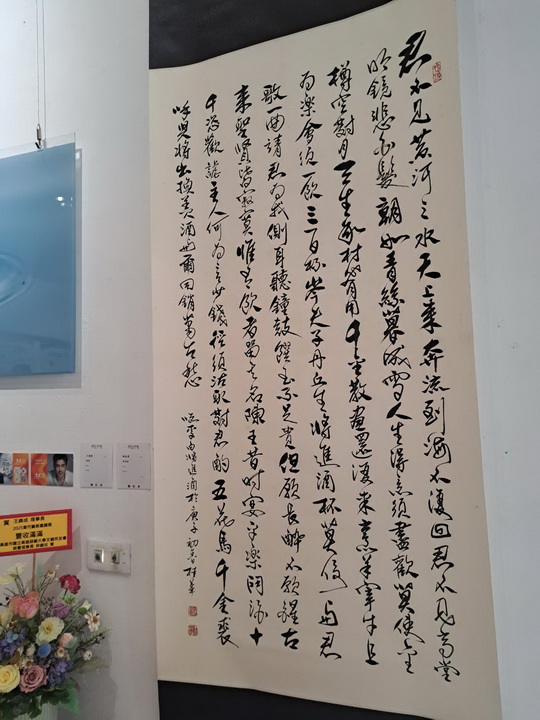 君不見黃河之水天上來奔流到海不復回君不見高堂
明鏡悲白髮朝如青絲暮成雪人生得意須盡歡莫使金
樽空對月天生我材必有用千金散盡還復來烹羊宰牛且
為樂會須一飲三百杯岑夫子丹丘生將進酒杯莫停與君
歌一曲請君為我側耳聽鐘鼓饌玉不足貴但願長醉不願醒古
來聖賢皆寂寞惟有飲者留其名陳王昔時宴平樂鬥酒十
千恣歡謔主人何為言少錢徑須沽取對君酌五花馬千金裘
呼兒將出換美酒與爾同銷萬古愁
李白將進酒於庚子初春
賀 王 理事長
2025當代藝術邀請展
豐收滿滿